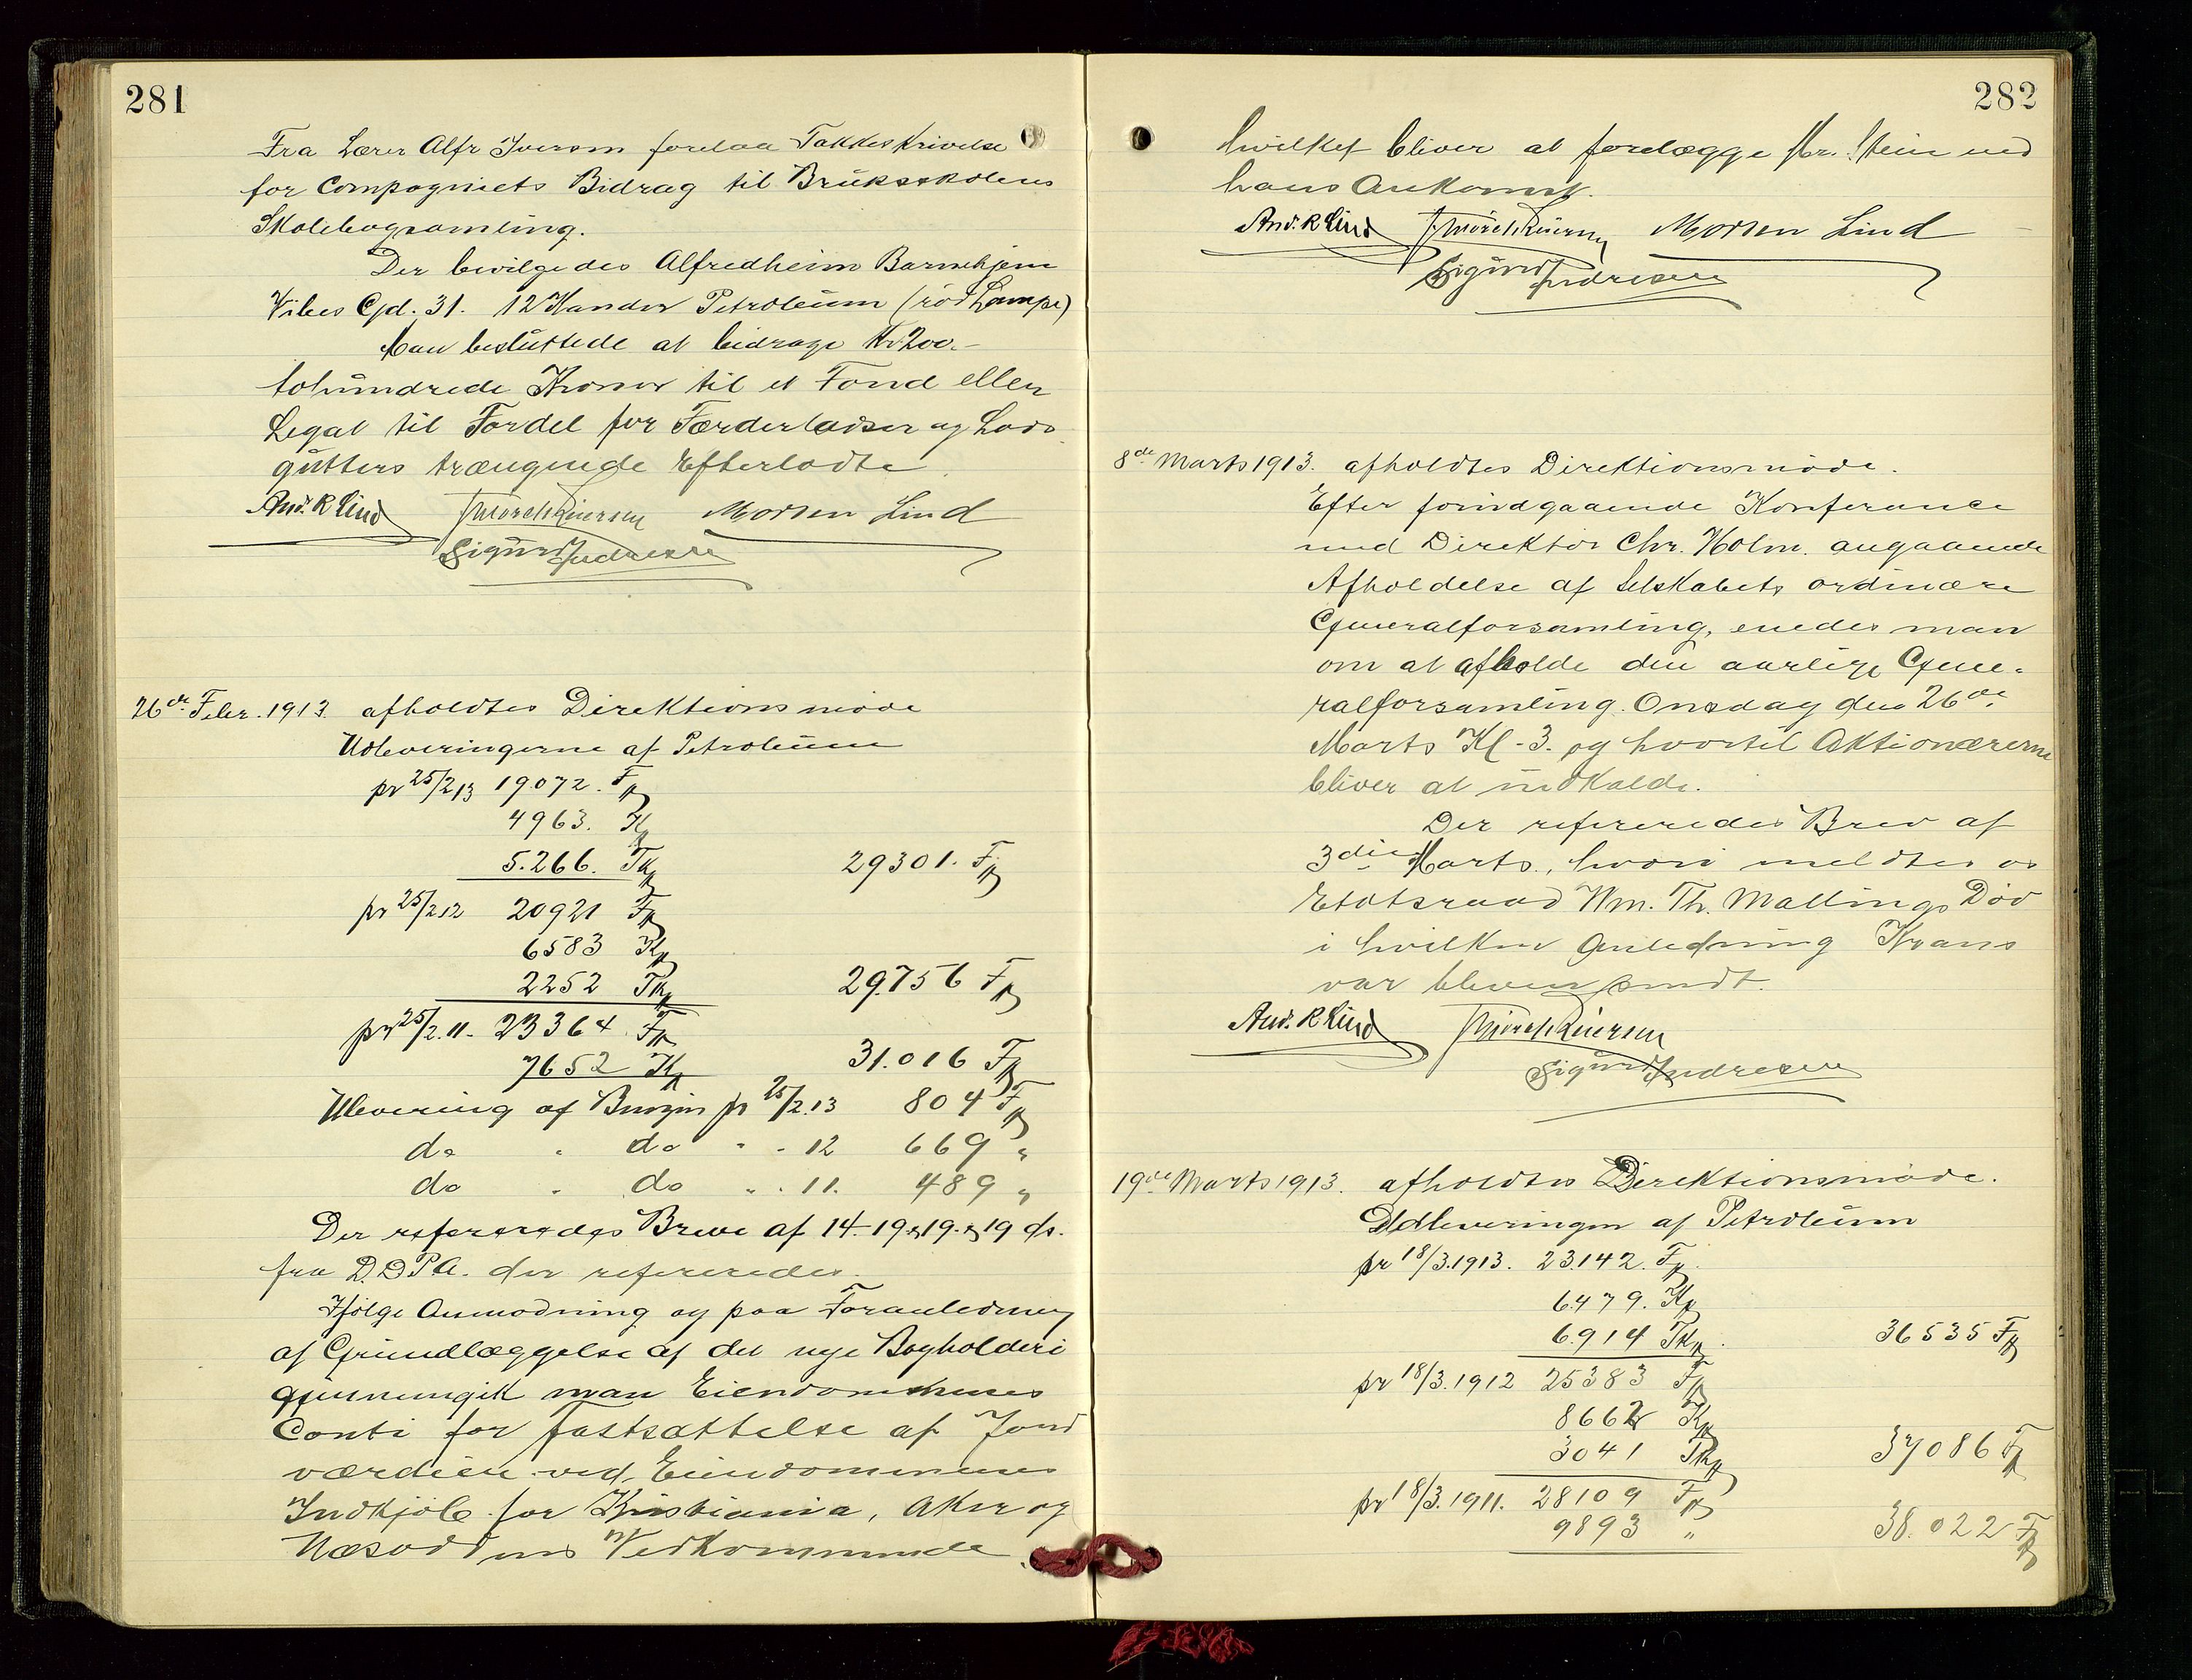 281
Fra Lærer Alfr Iversen forelaa Takkeskrivelse
for Compagniets Bidrag til Bruksskolens
Skolebogsamling.
Der bevilgedes Alfredheim Barnehjem
Vibes Gd. 31. 12 Kander Petroleum (rød Lampe)
Man besluttede at bidrage Kr 200.-
tohundrede Kroner til et Fond eller
Legat til Fordel for Færderlodser og Lods
gutters trængende Efterladte
And. R Lind T Mörch Reiersen Morten Lind
Sigurd Andresen
26de Febr. 1913. afholdtes Direktionsmöde
Udleveringerne af Petroleum
pr 25/2 13 19072. Fp
4963. Kp
5.266. Tkp 29301. Fp
pr 25/2 12 20921 Fp
6583 Kp
2252 Tkp 29.756 Fp
pr 25/2. 11. 23364 Fp
7652 Kp 31.016 Fp
Ulevering af Benzin pr 25/2.13 804 Fp
do " do " " 12 669 "
do " do " " 11. 489 "
Der refereredes Breve af 14-19 & 19. & 19 ds.
fra D.D.P.A. der refereredes.
Ifølge Anmodning og paa Foranledning
af Grundlæggelse af det nye Bogholderi
gjennemgik man Eiendommenes
Conti for Fastsættelse af Jord
værdien ved Eiendommenes
Indkjöb for Kristiania, Aker og
Næsoddens Vedkommende
282
hvilket bliver at forelægge Hr. Stein ved
hans Ankomst.
And. R Lind T Mörch Reiersen Morten Lind
Sigurd Andresen
8de Marts 1913. afholdtes Direktionsmöde.
Efter forudgaaende Konferance
med Direktör Chr. Holm. angaaende
Afholdelse af Selskabets ordinære
Generalforsamling, enedes man
om at afholde den aarlige Gene-
ralforsamling Onsdag den 26de
Marts Kl - 3. og hvortil Aktionærerne
bliver at indkalde.
Der refereredes Brev af
3die Marts., hvori meldtes os
Etatsraad Wm. Th. Mallings Död
i hvilken Anledning Krans
var bleven sendt.
And. R Lind T Mörch Reiersen
Sigurd Andresen
19de Marts 1913. afholdtes Direktionsmöde.
Udleveringen af Petroleum
pr 18/3.1913. 23.142. Fp
6.479. Kp
6.914 Tkp. 36535 Fp
pr 18/3.1912 25383 Fp
8662 Kp
3041 Tkp 37086 Fp
pr 18/3.1911. 28109 Fp
9893 " 38.022 Fp